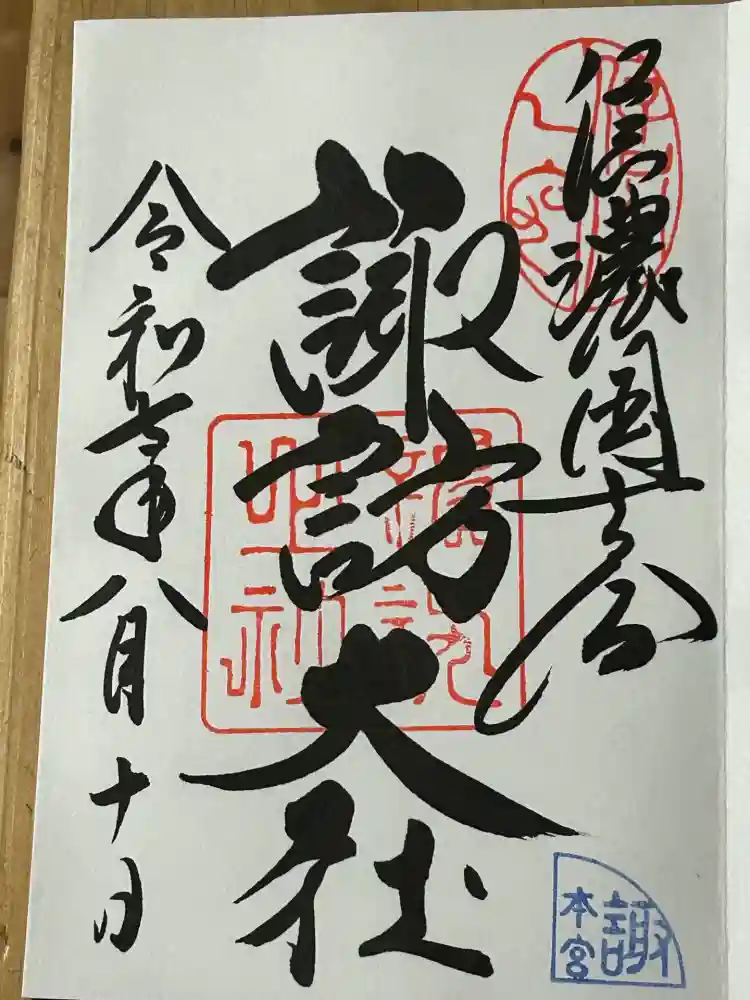 信濃國一之宮
諏訪大社
令和七年八月十日
諏
本宮